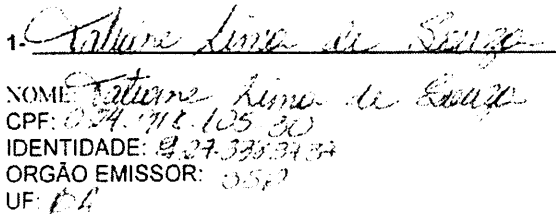 1- Tatiane Lima de Souza
NOME Tatiane Lima de Souza
CPF:
IDENTIDADE:
ORGÃO EMISSOR: SSP
UF: BA